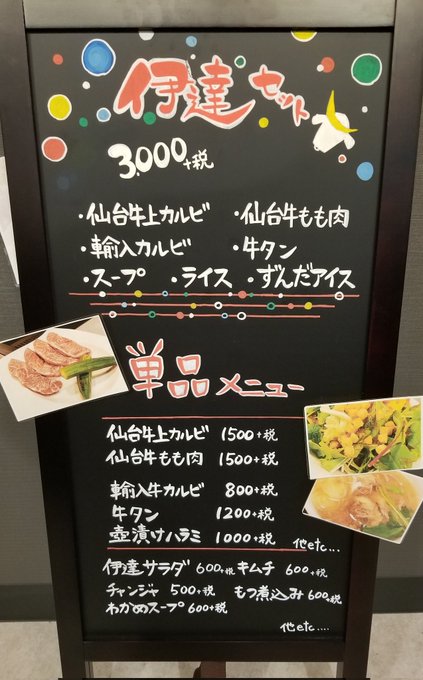 伊達セット
3,000+税
・仙台牛上カルビ ・仙台牛もも肉
・輸入カルビ ・牛タン
・スープ ・ライス ・ずんだアイス
単品メニュー
仙台牛上カルビ 1500+税
仙台牛もも肉 1500+税
輸入牛カルビ 800+税
牛タン 1200+税
壺漬けハラミ 1000+税
他etc...
伊達サラダ 600+税 キムチ 600+税
チャンジャ 500+税 もつ煮込み 600+税
わかめスープ 600+税
他etc....